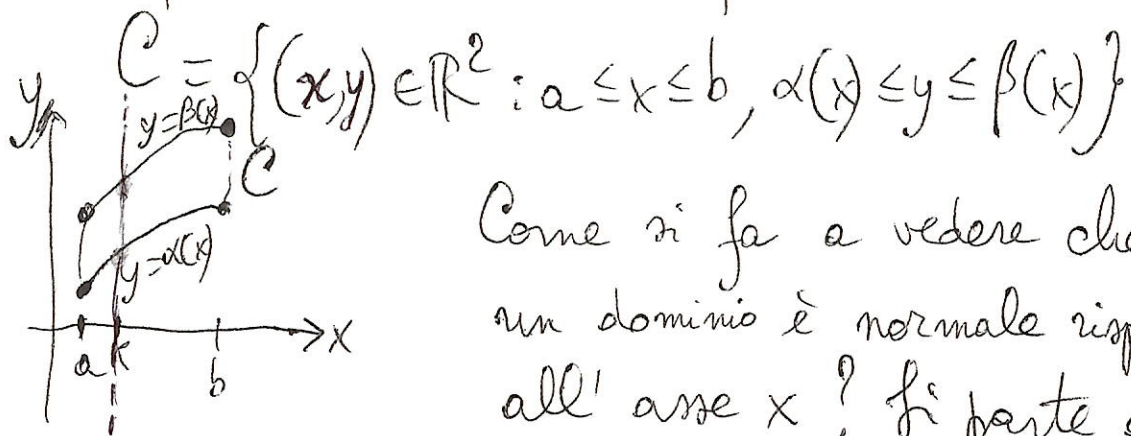 C = {(x,y) ∈ ℝ² : a ≤ x ≤ b, α(x) ≤ y ≤ β(x)}
y
y=β(x)
C
y=α(x)
a k b x
Come si fa a vedere che
un dominio è normale
all' asse x? Si parte